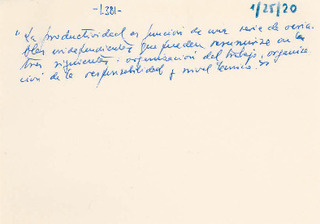 -L381-
1/25/20
"La productividad es función de una serie de varia-
bles independientes que pueden resumirse en las
tres siguientes: organización del trabajo, organiza-
ción de la responsabilidad y nivel técnico."